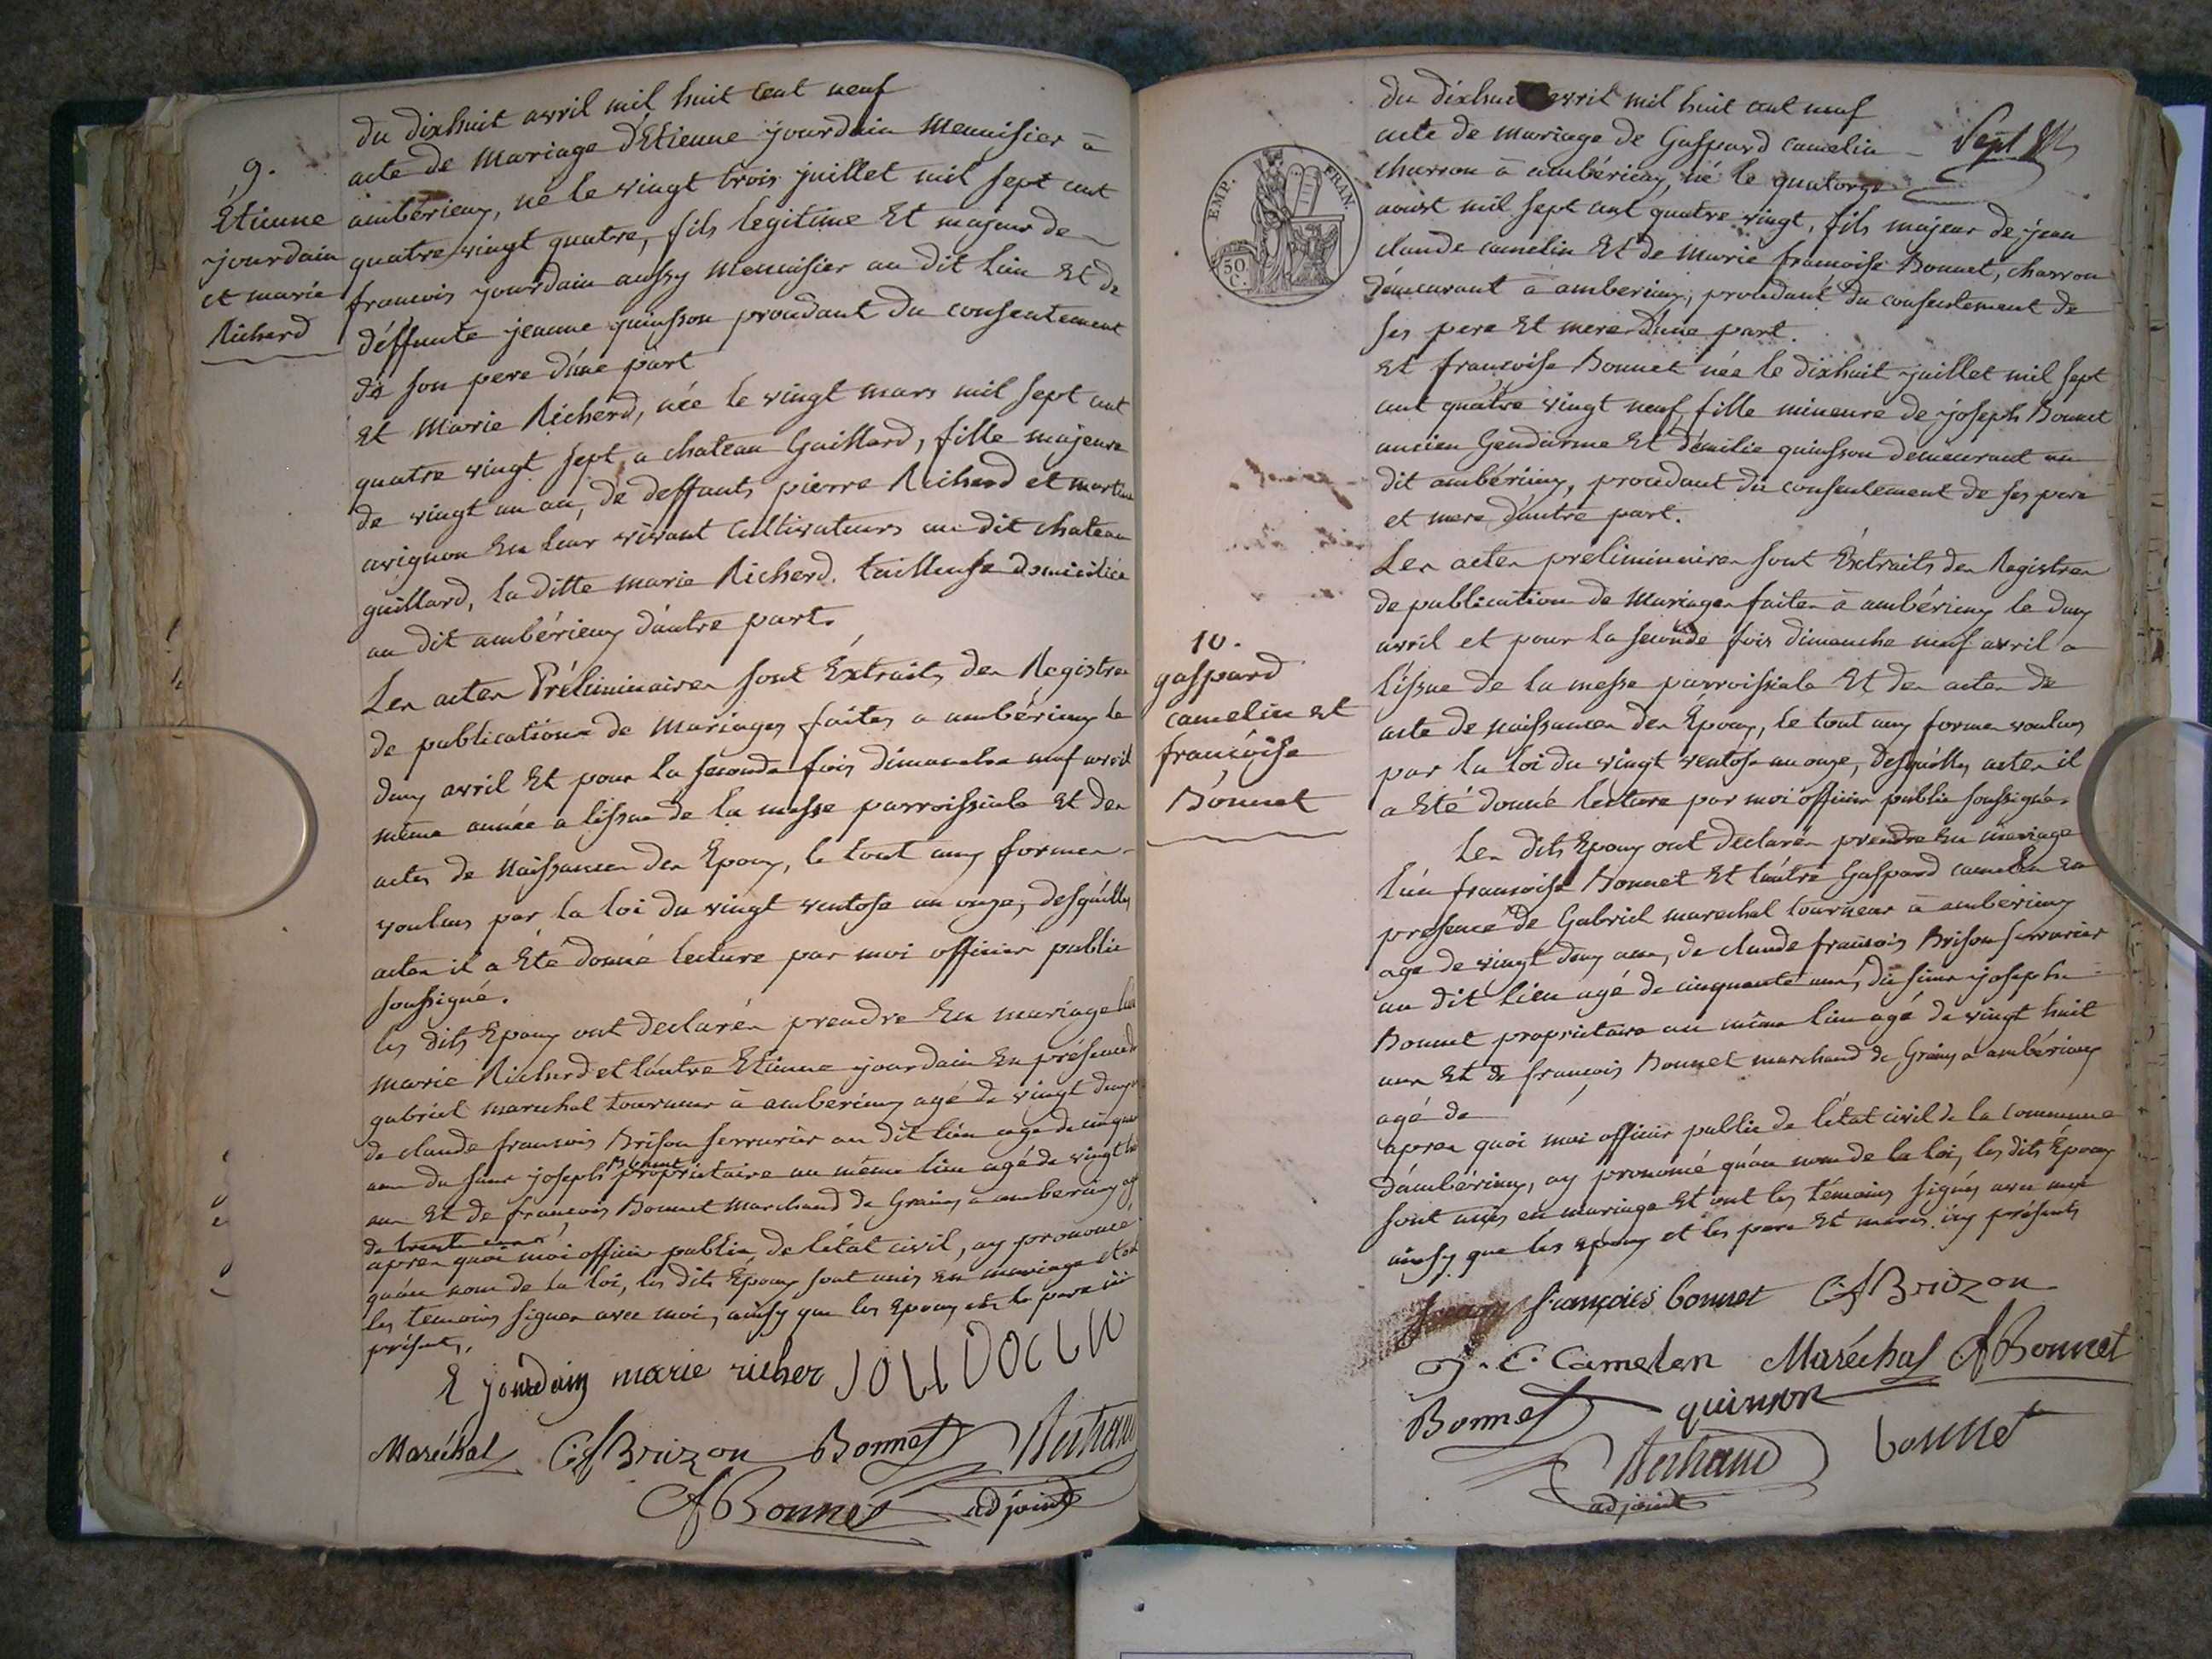 9.
Etienne
jourdain
et marie
Richerd
du dixhuit avril mil huit cent neuf
acte de Mariage d'Etienne jourdain Menuisier à
ambérieux, né le vingt trois juillet mil sept cent
quatre vingt quatre, fils legitime Et majeur de
francois jourdain aussy menuisier au dit lieu Et de
déffunte jeanne quinsson procedant du consentement
de son pere d'une part
Et Marie Richerd, née le vingt mars mil sept cent
quatre vingt sept a chateau Gaillard, fille majeure
de vingt un an, de deffunts pierre Richerd et martine
avignon En leur vivant Cultivateurs au dit chateau
guillard, la ditte marie Richerd. tailleuse domiciliée
au dit ambérieux d'autre part.
Les actes Préliminaires sont Extraits des Registres
de publications de Mariages faites a ambérieux le
deux avril Et pour la seconde fois dimanche neuf avril
même année a lissue de la messe parroissiale Et des
actes de Naissances des Epoux, le tout aux formes
voulues par la loi du vingt ventose an onze, desquelles
actes il a Eté donné lecture par moi officier public
soussigné.
les dits Epoux ont declarés prendre En mariage lun
marie Richerd et lautre Etienne jourdain En présence de
gabriel marechal tourneur à amberieux agé de vingt deux
de claude francois Brison serrurier au dit lieu agé de cinquante
ans du sieur joseph Bonnet propriétaire au même lieu agé de vingt huit
ans Et de francois Bonnet Marchand de Grains a amberieux agé
de trente ans
apres quoi moi officier public de létat civil, ay prononcé
quau nom de la loi, les dits Epoux sont unis En mariage et ont
les temoins signes avec moi, ainsy que les Epoux et le pere ici
présents.
E jourdain marie richer JOURDOIN
Maréchal CfBrizon Bonnet Bertrand
CfBonnet adjoint
du dixhuit avril mil huit cent neuf
acte de Mariage de Gaspard camelin
Sept
charron à ambérieux, né le quatorze
aoust mil sept cent quatre vingt, fils majeur de jean
claude camelin Et de Marie francoise Bonnet, charron
démeurant à amberieux, procedant du consentement de
ses pere Et mere d'une part.
Et francoise Bonnet née le dixhuit juillet mil sept
cent quatre vingt neuf fille mineure de joseph Bonnet
ancien Gendarme Et d'émilie quinsson demeurant au
dit ambérieux, procedant du consentement de ses pere
et mere d'autre part.
Les actes préliminaires sont Extraits des Registres
de publication de Mariages faites à ambérieux le deux
avril et pour la seconde fois dimanche neuf avril a
lissue de la messe parroissiale Et des actes de
acte de naissances des Epoux, le tout aux formes voulues
par la loi du vingt ventose an onze, desquelles actes il
a Eté donné lecture par moi officier public soussigné.
Les dits Epoux ont declarés prendre En mariage
l'un francoise Bonnet Et l'autre Gaspard camelin En
presence de Gabriel marechal tourneur à ambérieux
agé de vingt deux ans, de claude francois Brison serrurier
au dit lieu agé de cinquante ans, du sieur joseph
Bonnet propriétaire au même lieu agé de vingt huit
ans Et de francois Bonnet marchand de Grains a ambérieux
agé de
apres quoi moi officier public de létat civil de la Commune
d'ambérieux, ay prononcé quau nom de la loi, les dits Epoux
sont unis en mariage Et ont les témoins signés avec moi
ainsy que les Epoux et les pere Et meres icy présents
françois bonnet CfBrizon
J. C. Camelen Maréchal CfBonnet
Bonnet quinson
Bertrand bonnet
adjoint
EMP. FRAN.
50
C.
10.
gaspard
camelin Et
françoise
Bonnet